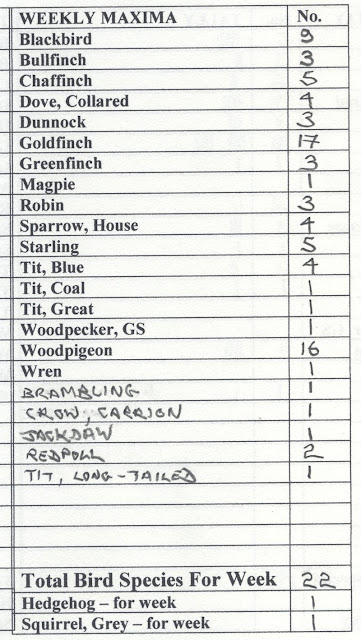 WEEKLY MAXIMA No.
Blackbird 9
Bullfinch 3
Chaffinch 5
Dove, Collared 4
Dunnock 3
Goldfinch 17
Greenfinch 3
Magpie 1
Robin 3
Sparrow, House 4
Starling 5
Tit, Blue 4
Tit, Coal 1
Tit, Great 1
Woodpecker, GS 1
Woodpigeon 16
Wren 1
BRAMBLING 1
CROW, CARRION 1
JACKDAW 1
REDPOLL 2
TIT, LONG-TAILED 1
Total Bird Species For Week 22
Hedgehog – for week 1
Squirrel, Grey – for week 1